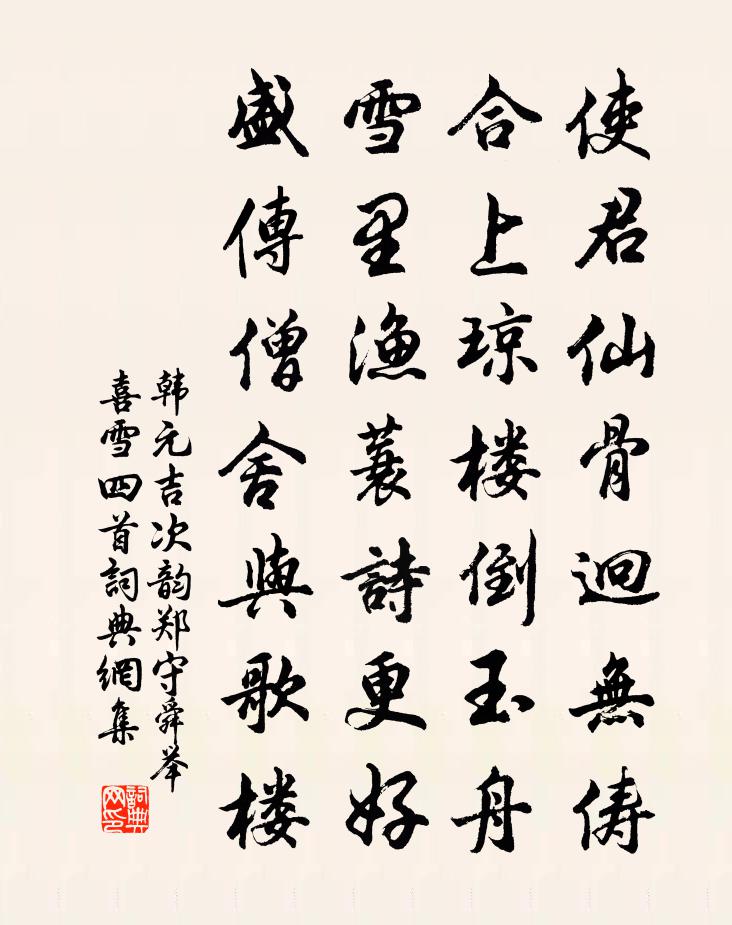 使君仙骨迥無俦
合上琼楼倒玉舟
雪里渔蓑詩更好
盛傳僧舍與歌楼
韩元吉次韵郑守舜举
喜雪四首詞典網集
詞典网印